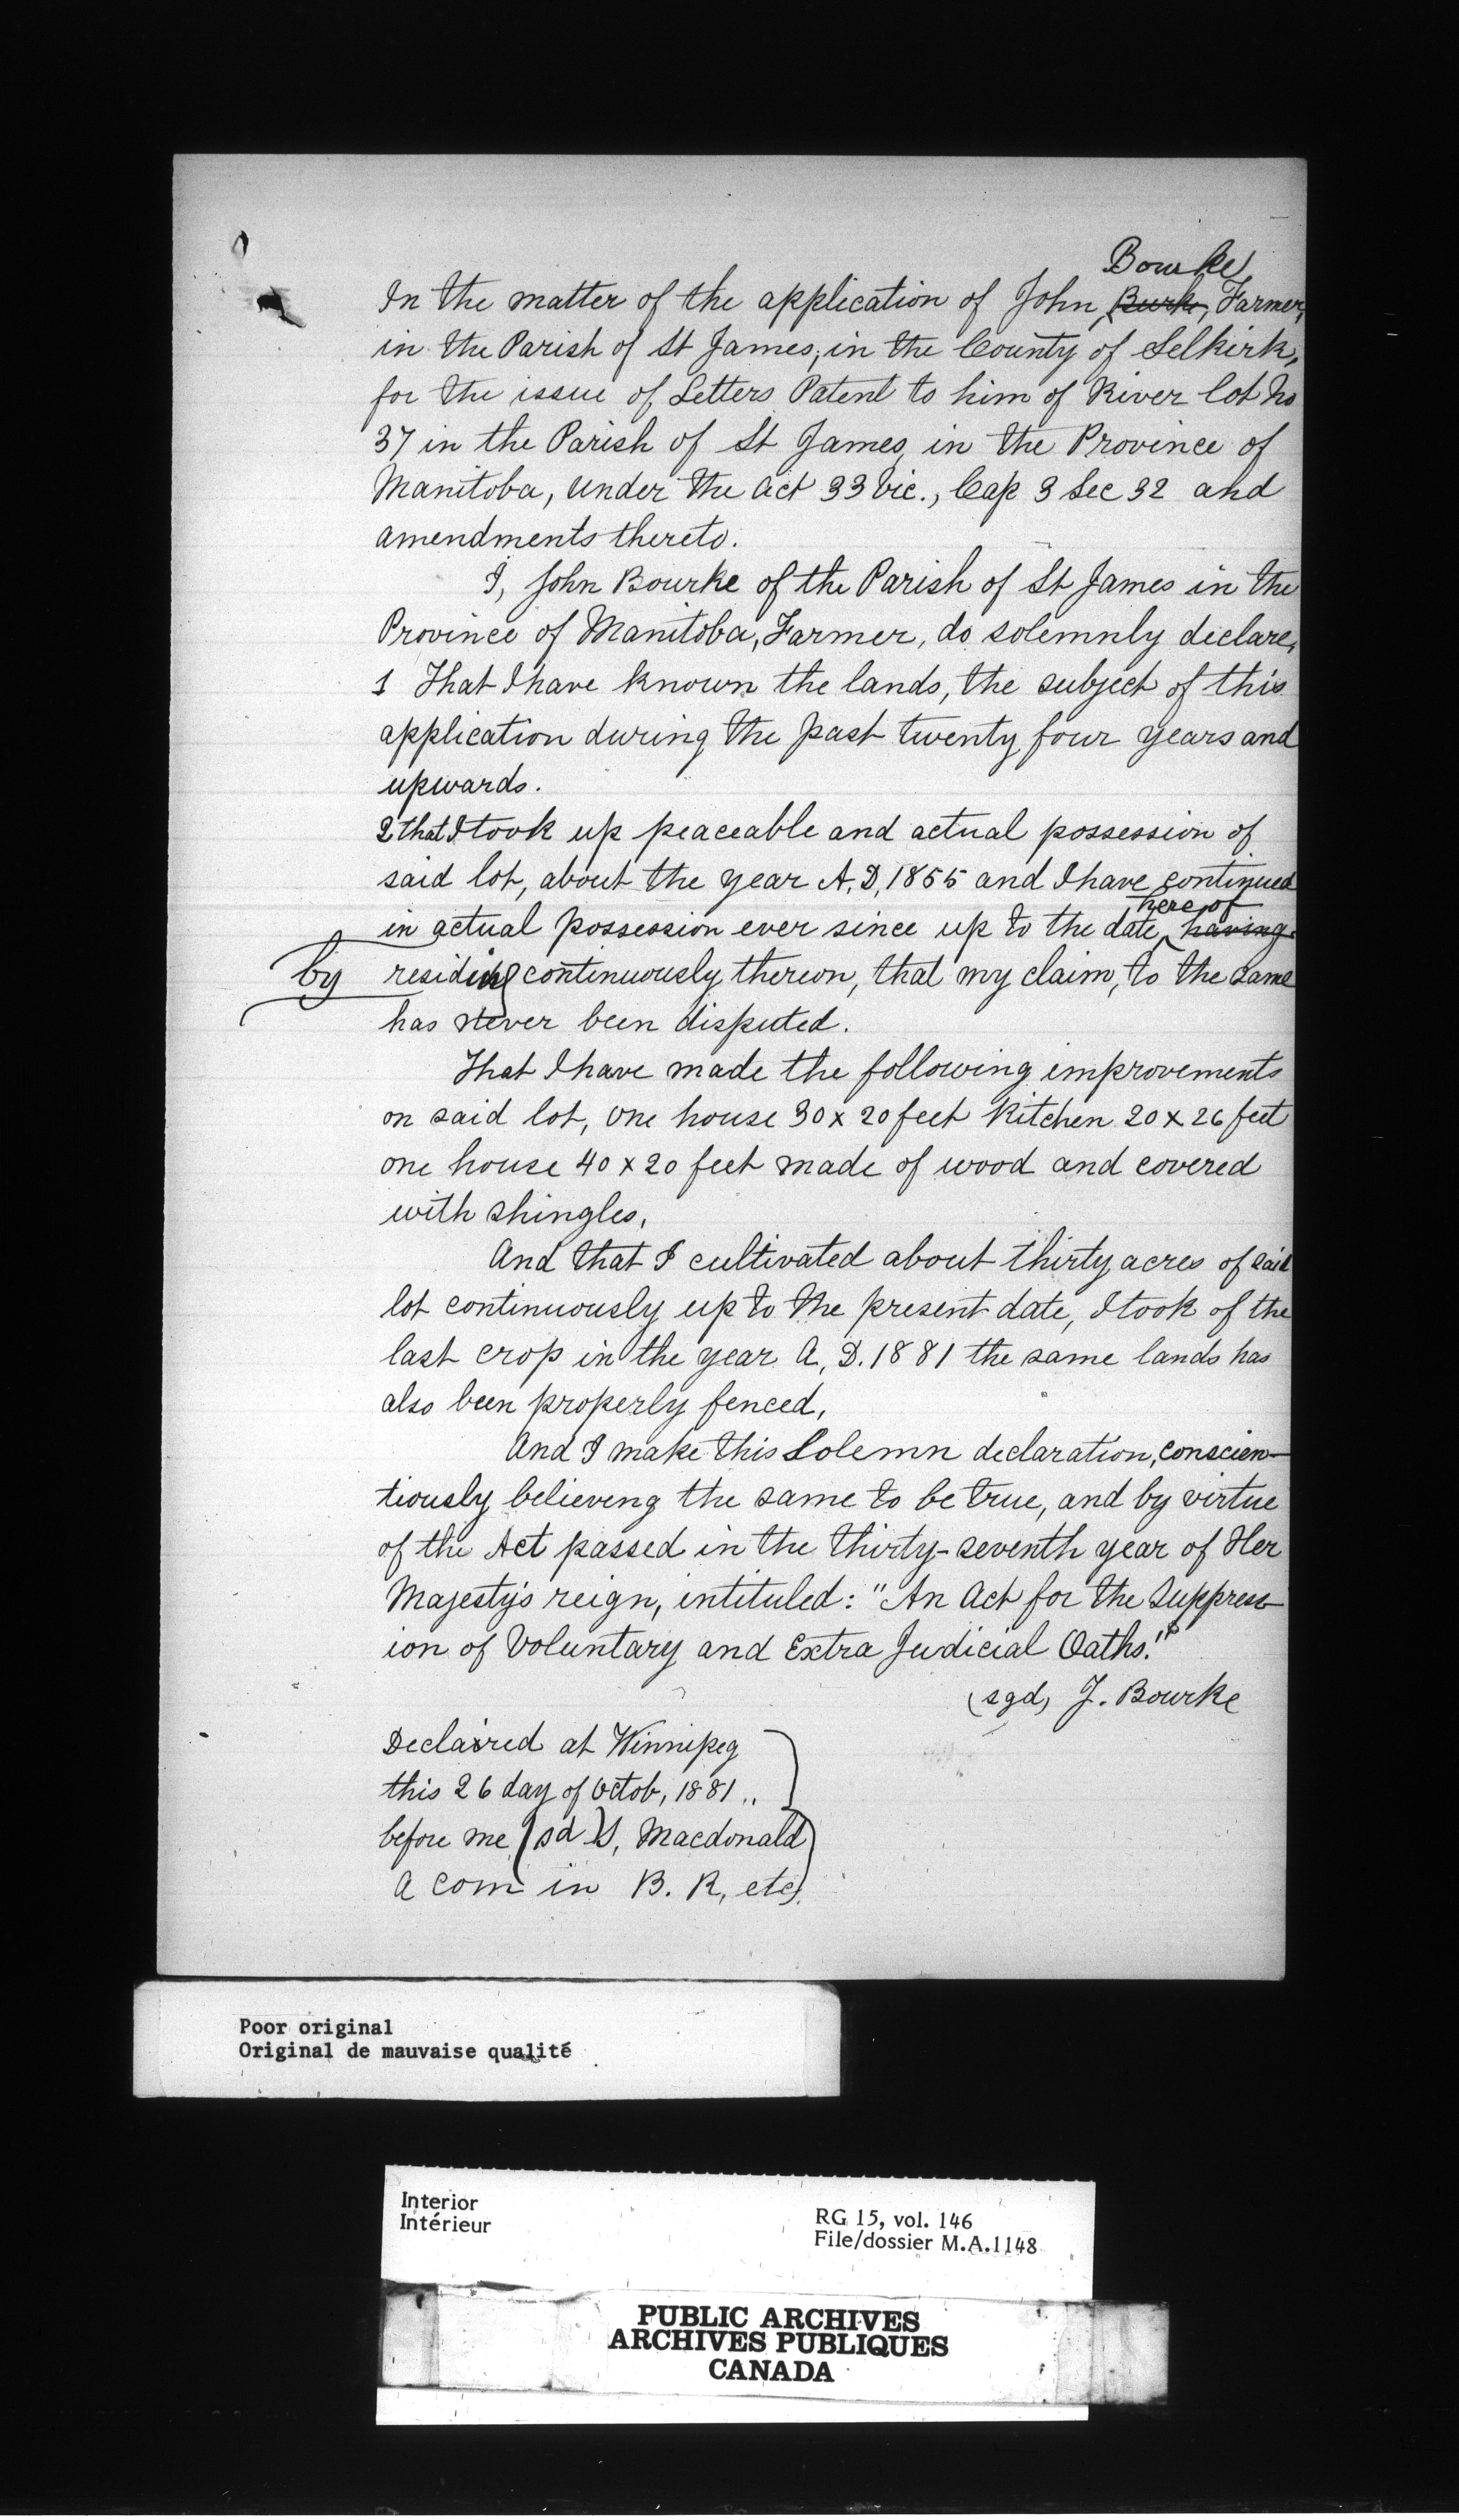 Bourke,
In the matter of the application of John Burke, Farmer,
in the Parish of St James, in the County of Selkirk,
for the issue of Letters Patent to him of River lot No
37 in the Parish of St James, in the Province of
Manitoba, under the Act 33 Vic., Cap 3 Sec 32 and
amendments thereto.
I, John Bourke of the Parish of St James in the
Province of Manitoba, Farmer, do solemnly declare,
1 That I have known the lands, the subject of this
application during the past twenty four years and
upwards.
2 that I took up peaceable and actual possession of
said lot, about the year A, D, 1855 and I have continued
here of
in actual possession ever since up to the date, having
by residing continuously thereon, that my claim, to the same
has never been disputed.
That I have made the following improvements
on said lot, one house 30 x 20 feet Kitchen 20 x 26 feet
one house 40 x 20 feet made of wood and covered
with shingles,
And that I cultivated about thirty acres of said
lot continuously up to the present date, I took of the
last crop in the year A, D. 1881 the same lands has
also been properly fenced,
And I make this Solemn declaration, conscien-
tiously believing the same to be true, and by virtue
of the Act passed in the thirty-seventh year of Her
Majesty's reign, intituled: "An Act for the Suppress
ion of Voluntary and Extra Judicial Oaths."
(sgd) J. Bourke
Declaired at Winnipeg
this 26 day of Octob, 1881..
before me (sd) S, Macdonald
A Com in B. R, etc,
Poor original
Original de mauvaise qualité
Interior
Intérieur
RG 15, vol. 146
File/dossier M.A.1148
PUBLIC ARCHIVES
ARCHIVES PUBLIQUES
CANADA